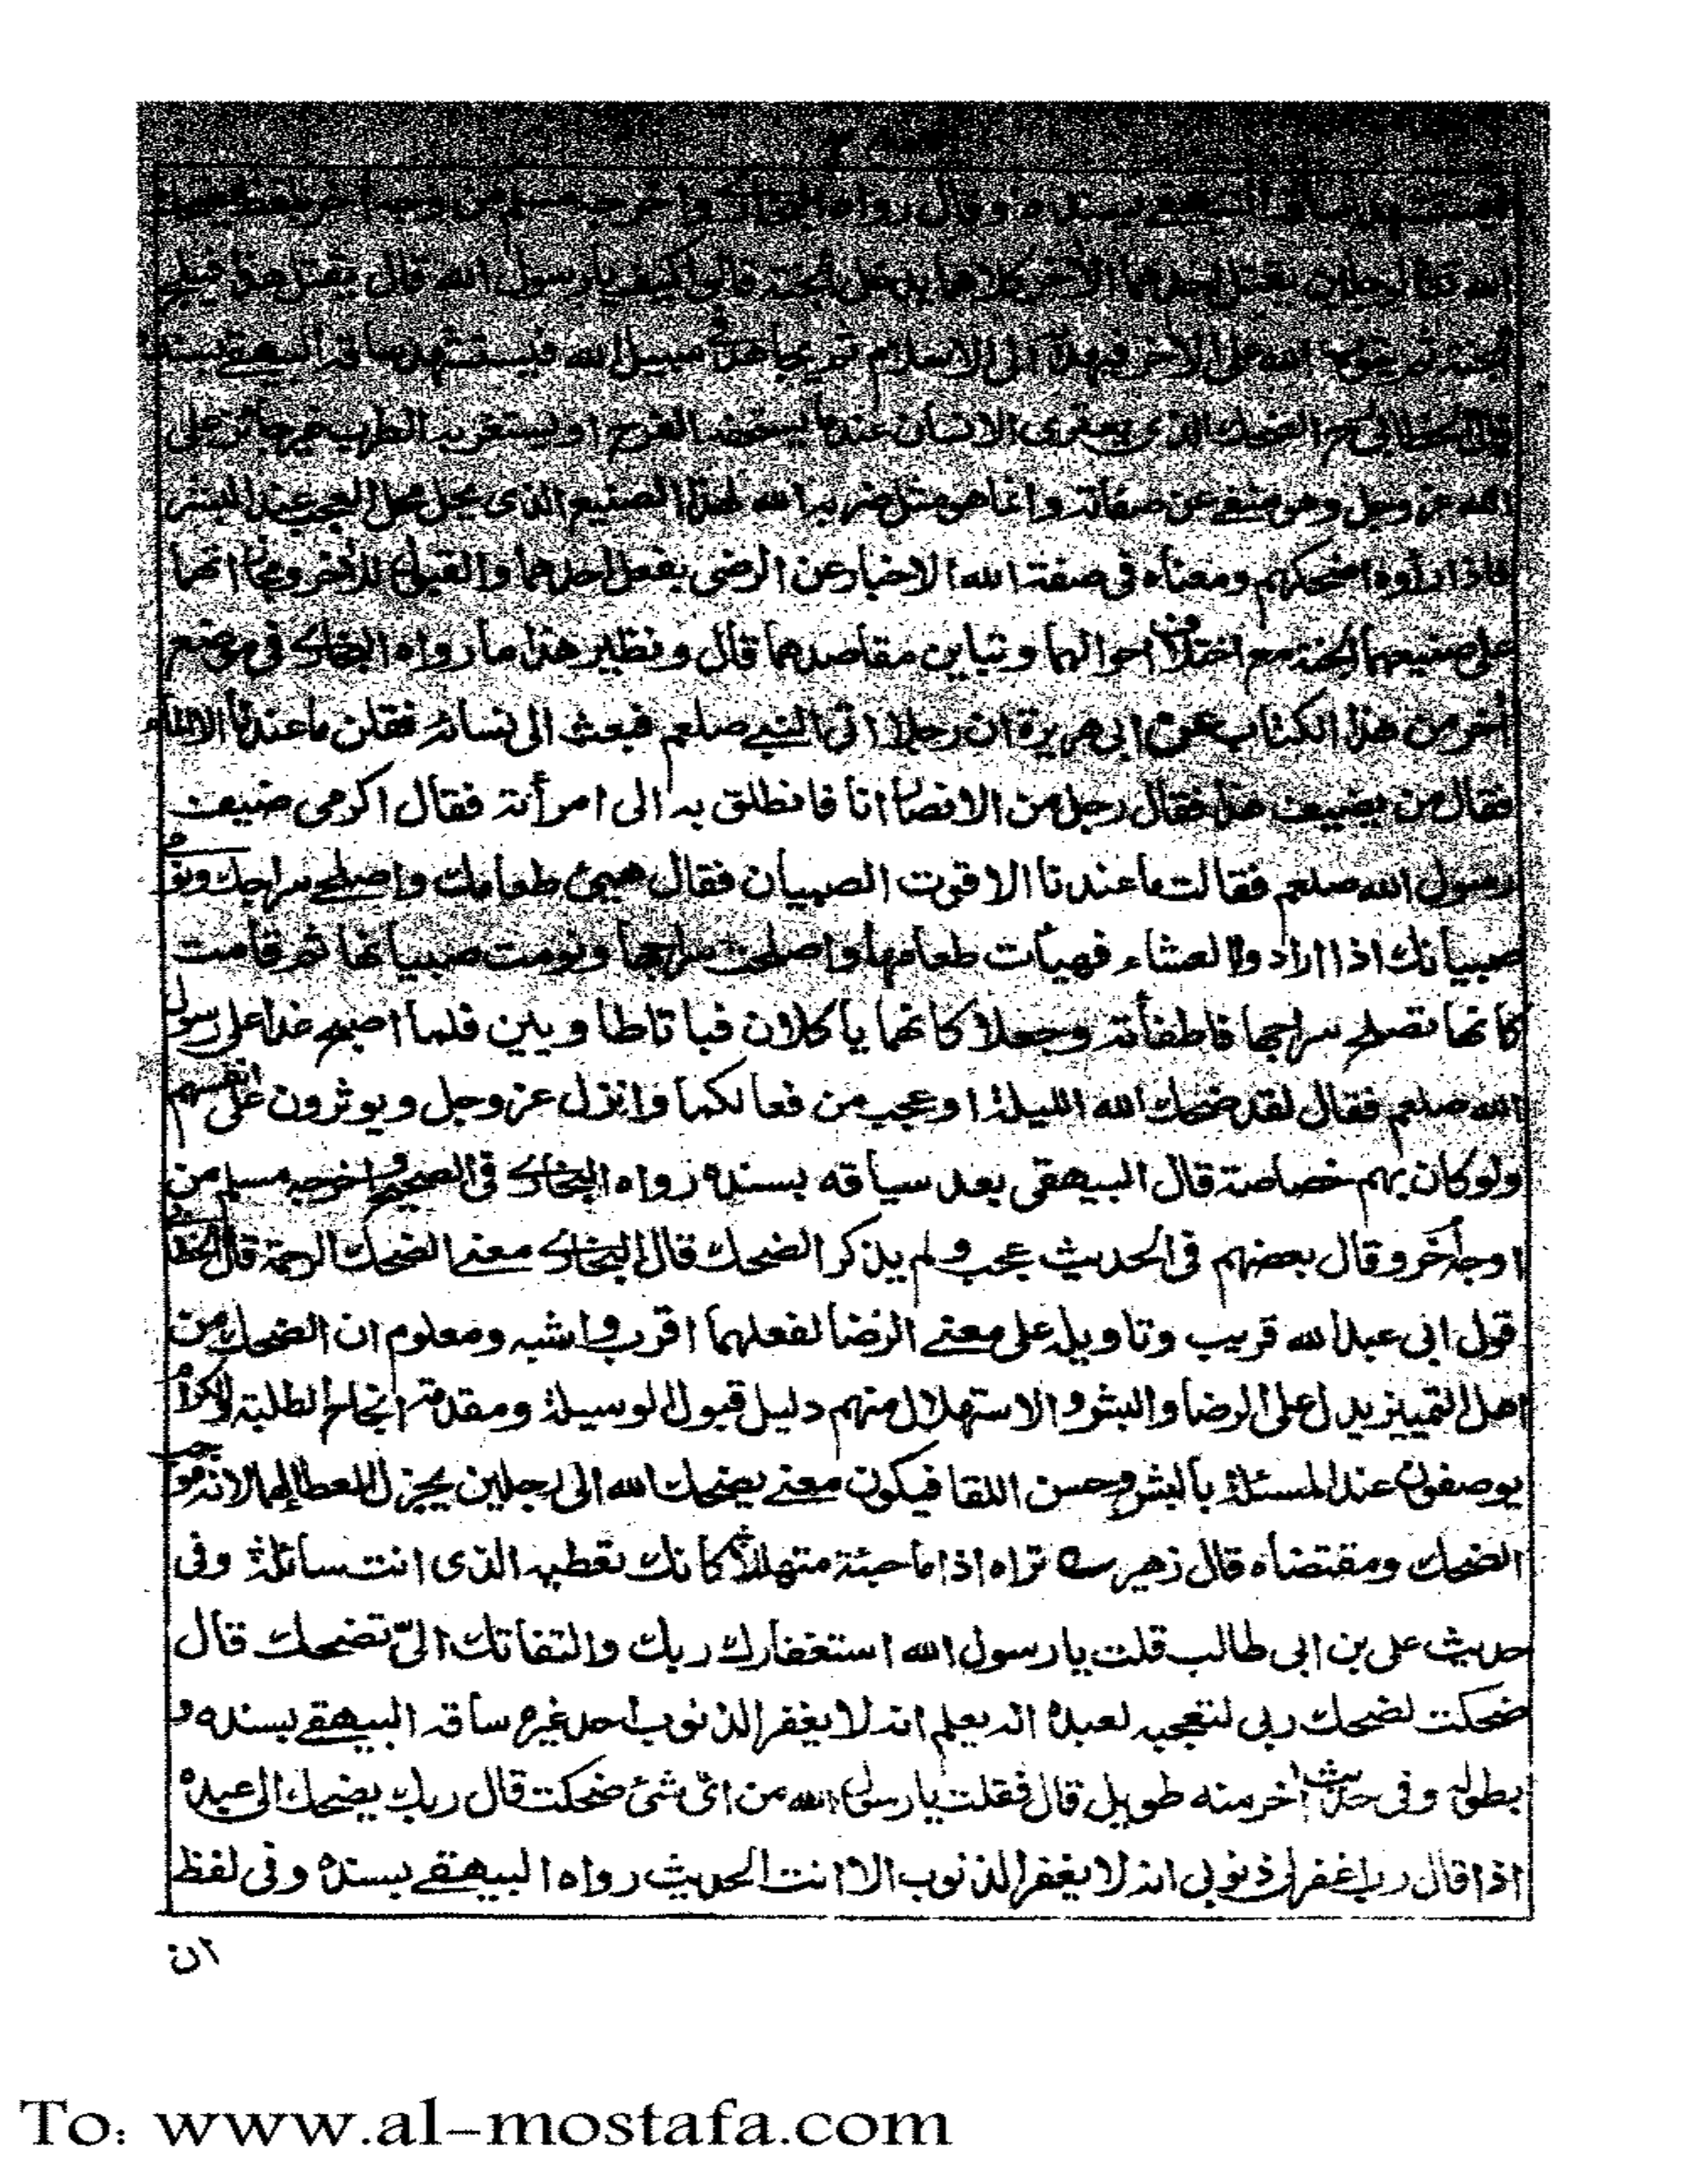 فيستشهد ساقه البيهقي بسنده وقال رواه البخاري واخرجه مسلم من وجه آخر
الله لرجلين يقتل احدهما الآخر كلاهما يدخل الجنة قالوا كيف يا رسول الله قال يقتل هذا فيلج
الجنة ثم يتوب الله على الآخر فيهديه الى الاسلام ثم يجاهد في سبيل الله فيستشهد ساقه البيهقي بسنده
قال الخطابي الضحك الذي يعتري الانسان عندما يستخفه الفرح او يستفزه الطرب غير جائز على
الله عز وجل وهو منفي عن صفاته وانما هو مثل ضربه الله لهذا الصنيع الذي يحل محل العجب عند البشر
فاذا رأوه اضحكهم ومعناه في صفة الله الاخبار عن الرضى بفعل احدهما والقبول للآخر ومجازاتهما
على صنيعهما الجنة مع اختلاف احوالهما وتباين مقاصدهما قال ونظير هذا ما رواه البخاري في موضع
آخر من هذا الكتاب عن ابي هريرة ان رجلا اتى النبي صلعم فبعث الى نسائه فقلن ما عندنا الا الماء
فقال من يضيف هذا فقال رجل من الانصار انا فانطلق به الى امرأته فقال اكرمي ضيف
رسول الله صلعم فقالت ما عندنا الا قوت الصبيان فقال هيئ طعامك واصلحي سراجك ونومي
صبيانك اذا ارادوا العشاء فهيأت طعامها واصلحت سراجها ونومت صبيانها ثم قامت
كانها تصلح سراجها فاطفأته وجعلا كانهما ياكلان فباتا طاويين فلما اصبح غدا على رسول
الله صلعم فقال لقد ضحك الله الليلة او عجب من فعالكما وانزل عز وجل ويوثرون على انفسهم
ولو كان بهم خصاصة قال البيهقي بعد سياقه بسنده رواه البخاري في الصحيح واخرجه مسلم من
اوجه أخر وقال بعضهم في الحديث عجب ولم يذكر الضحك قال البخاري معنى الضحك الرحمة قال الخطابي
قول ابي عبد الله قريب وتاويله على معنى الرضا لفعلهما اقرب واشبه ومعلوم ان الضحك من
اهل التمييز يدل على الرضا والبشر والاستهلال منهم دليل قبول الوسيلة ومقدمة انجاح الطلبة والكرام
يوصفون عند المسئلة بالبشر وحسن اللقا فيكون معنى يضحك الله الى رجلين يجزل العطا لهما لانه موجب
الضحك ومقتضاه قال زهير تراه اذا ما جئته متهللا كانك تعطيه الذي انت سائله وفي
حديث علي بن ابي طالب قلت يا رسول الله استغفارك ربك والتفاتك اليّ تضحك قال
ضحكت لضحك ربي لتعجبه لعبده انه يعلم انه لا يغفر الذنوب احد غيره ساقه البيهقي بسنده و
بطوله وفي حديث آخر منه طويل قال فقلت يا رسول الله من اي شئ ضحكت قال ربك يضحك الى عبده
اذا قال رب اغفر لي ذنوبي انه لا يغفر الذنوب الا انت الحديث رواه البيهقي بسنده وفي لفظ
ان
To: www.al-mostafa.com